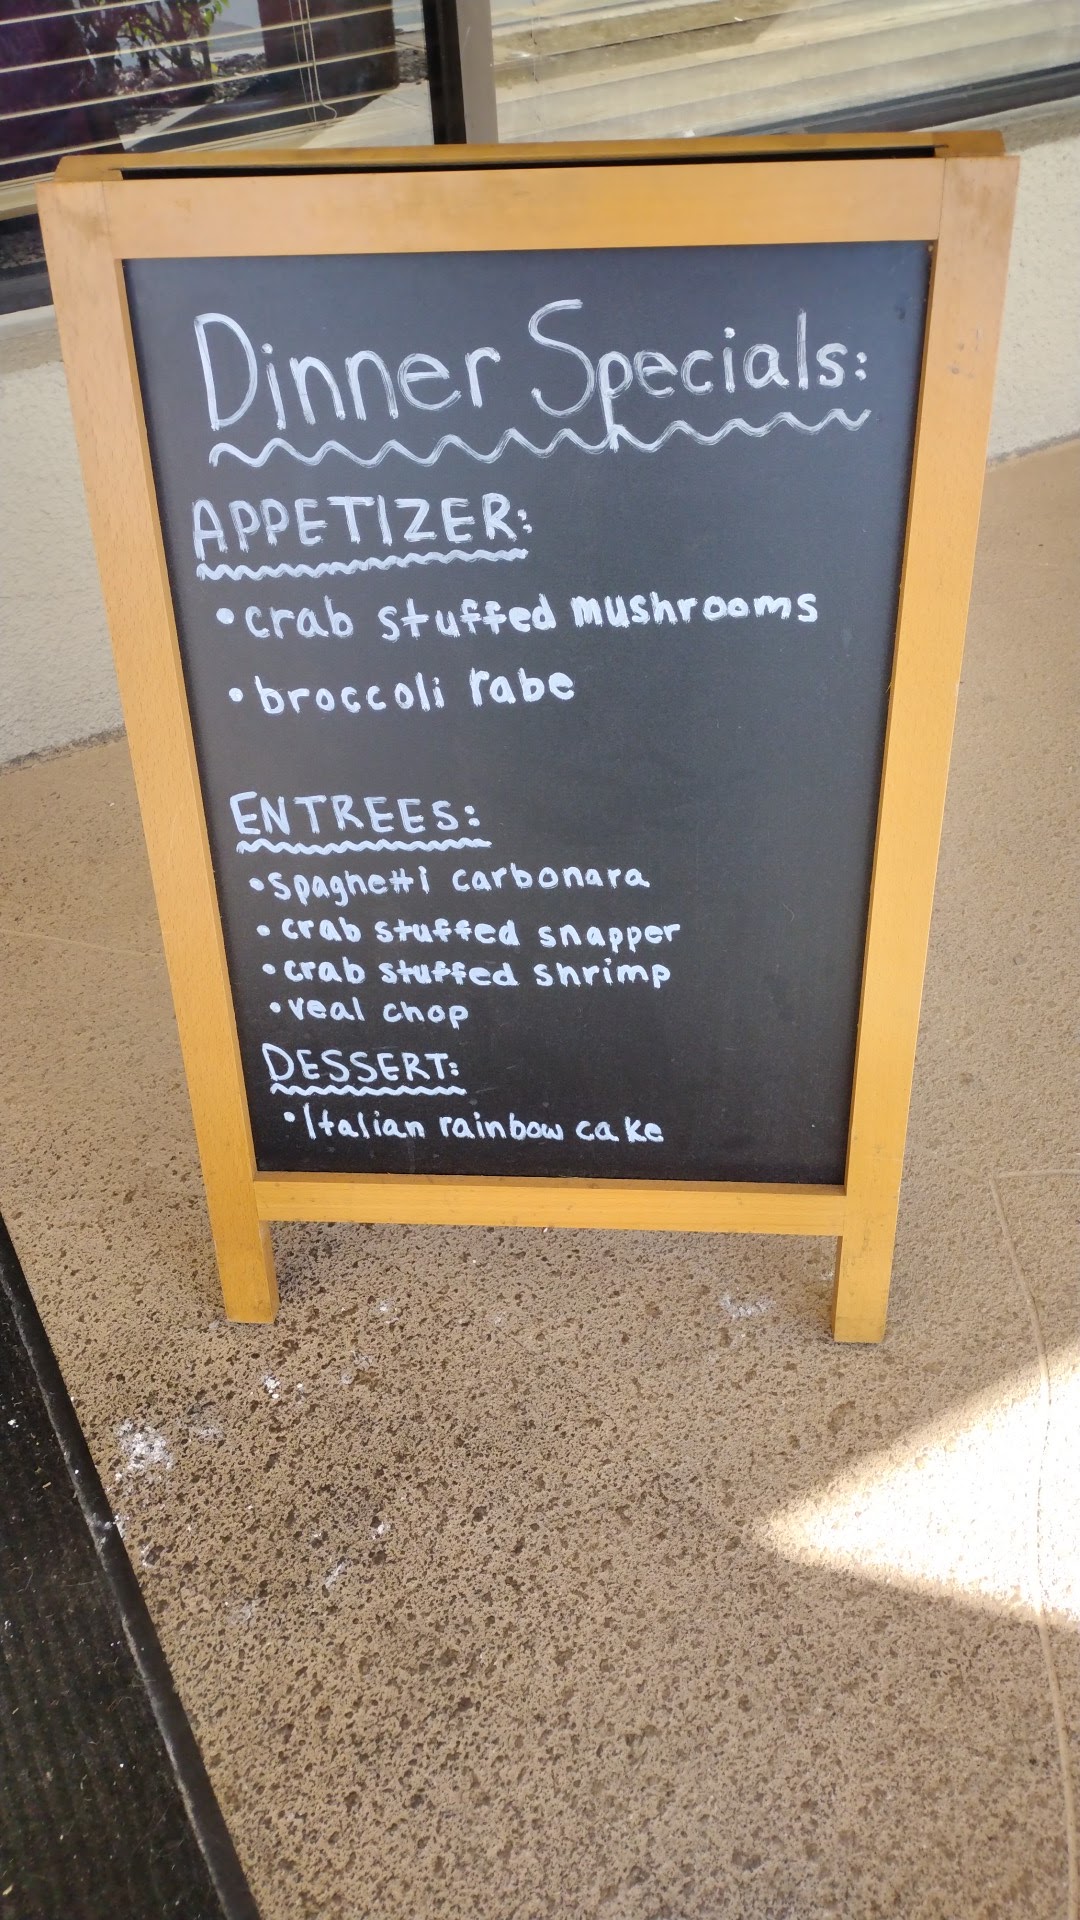 Dinner Specials:
APPETIZER:
• crab stuffed mushrooms
• broccoli rabe
ENTREES:
• spaghetti carbonara
• crab stuffed snapper
• crab stuffed shrimp
• veal chop
DESSERT:
• Italian rainbow cake